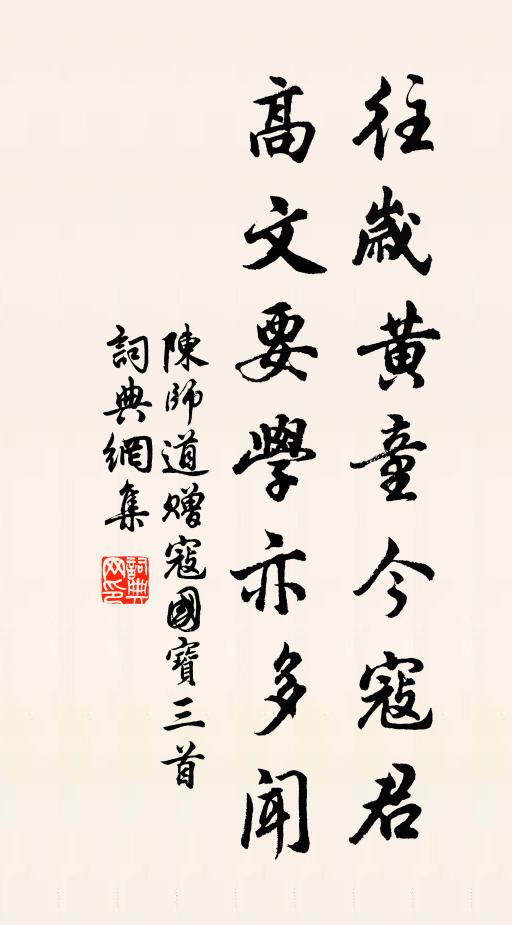 往歲黃童今寇君
高文要學亦多聞
陳師道贈寇國寶三首
詞典網集
詞典网印